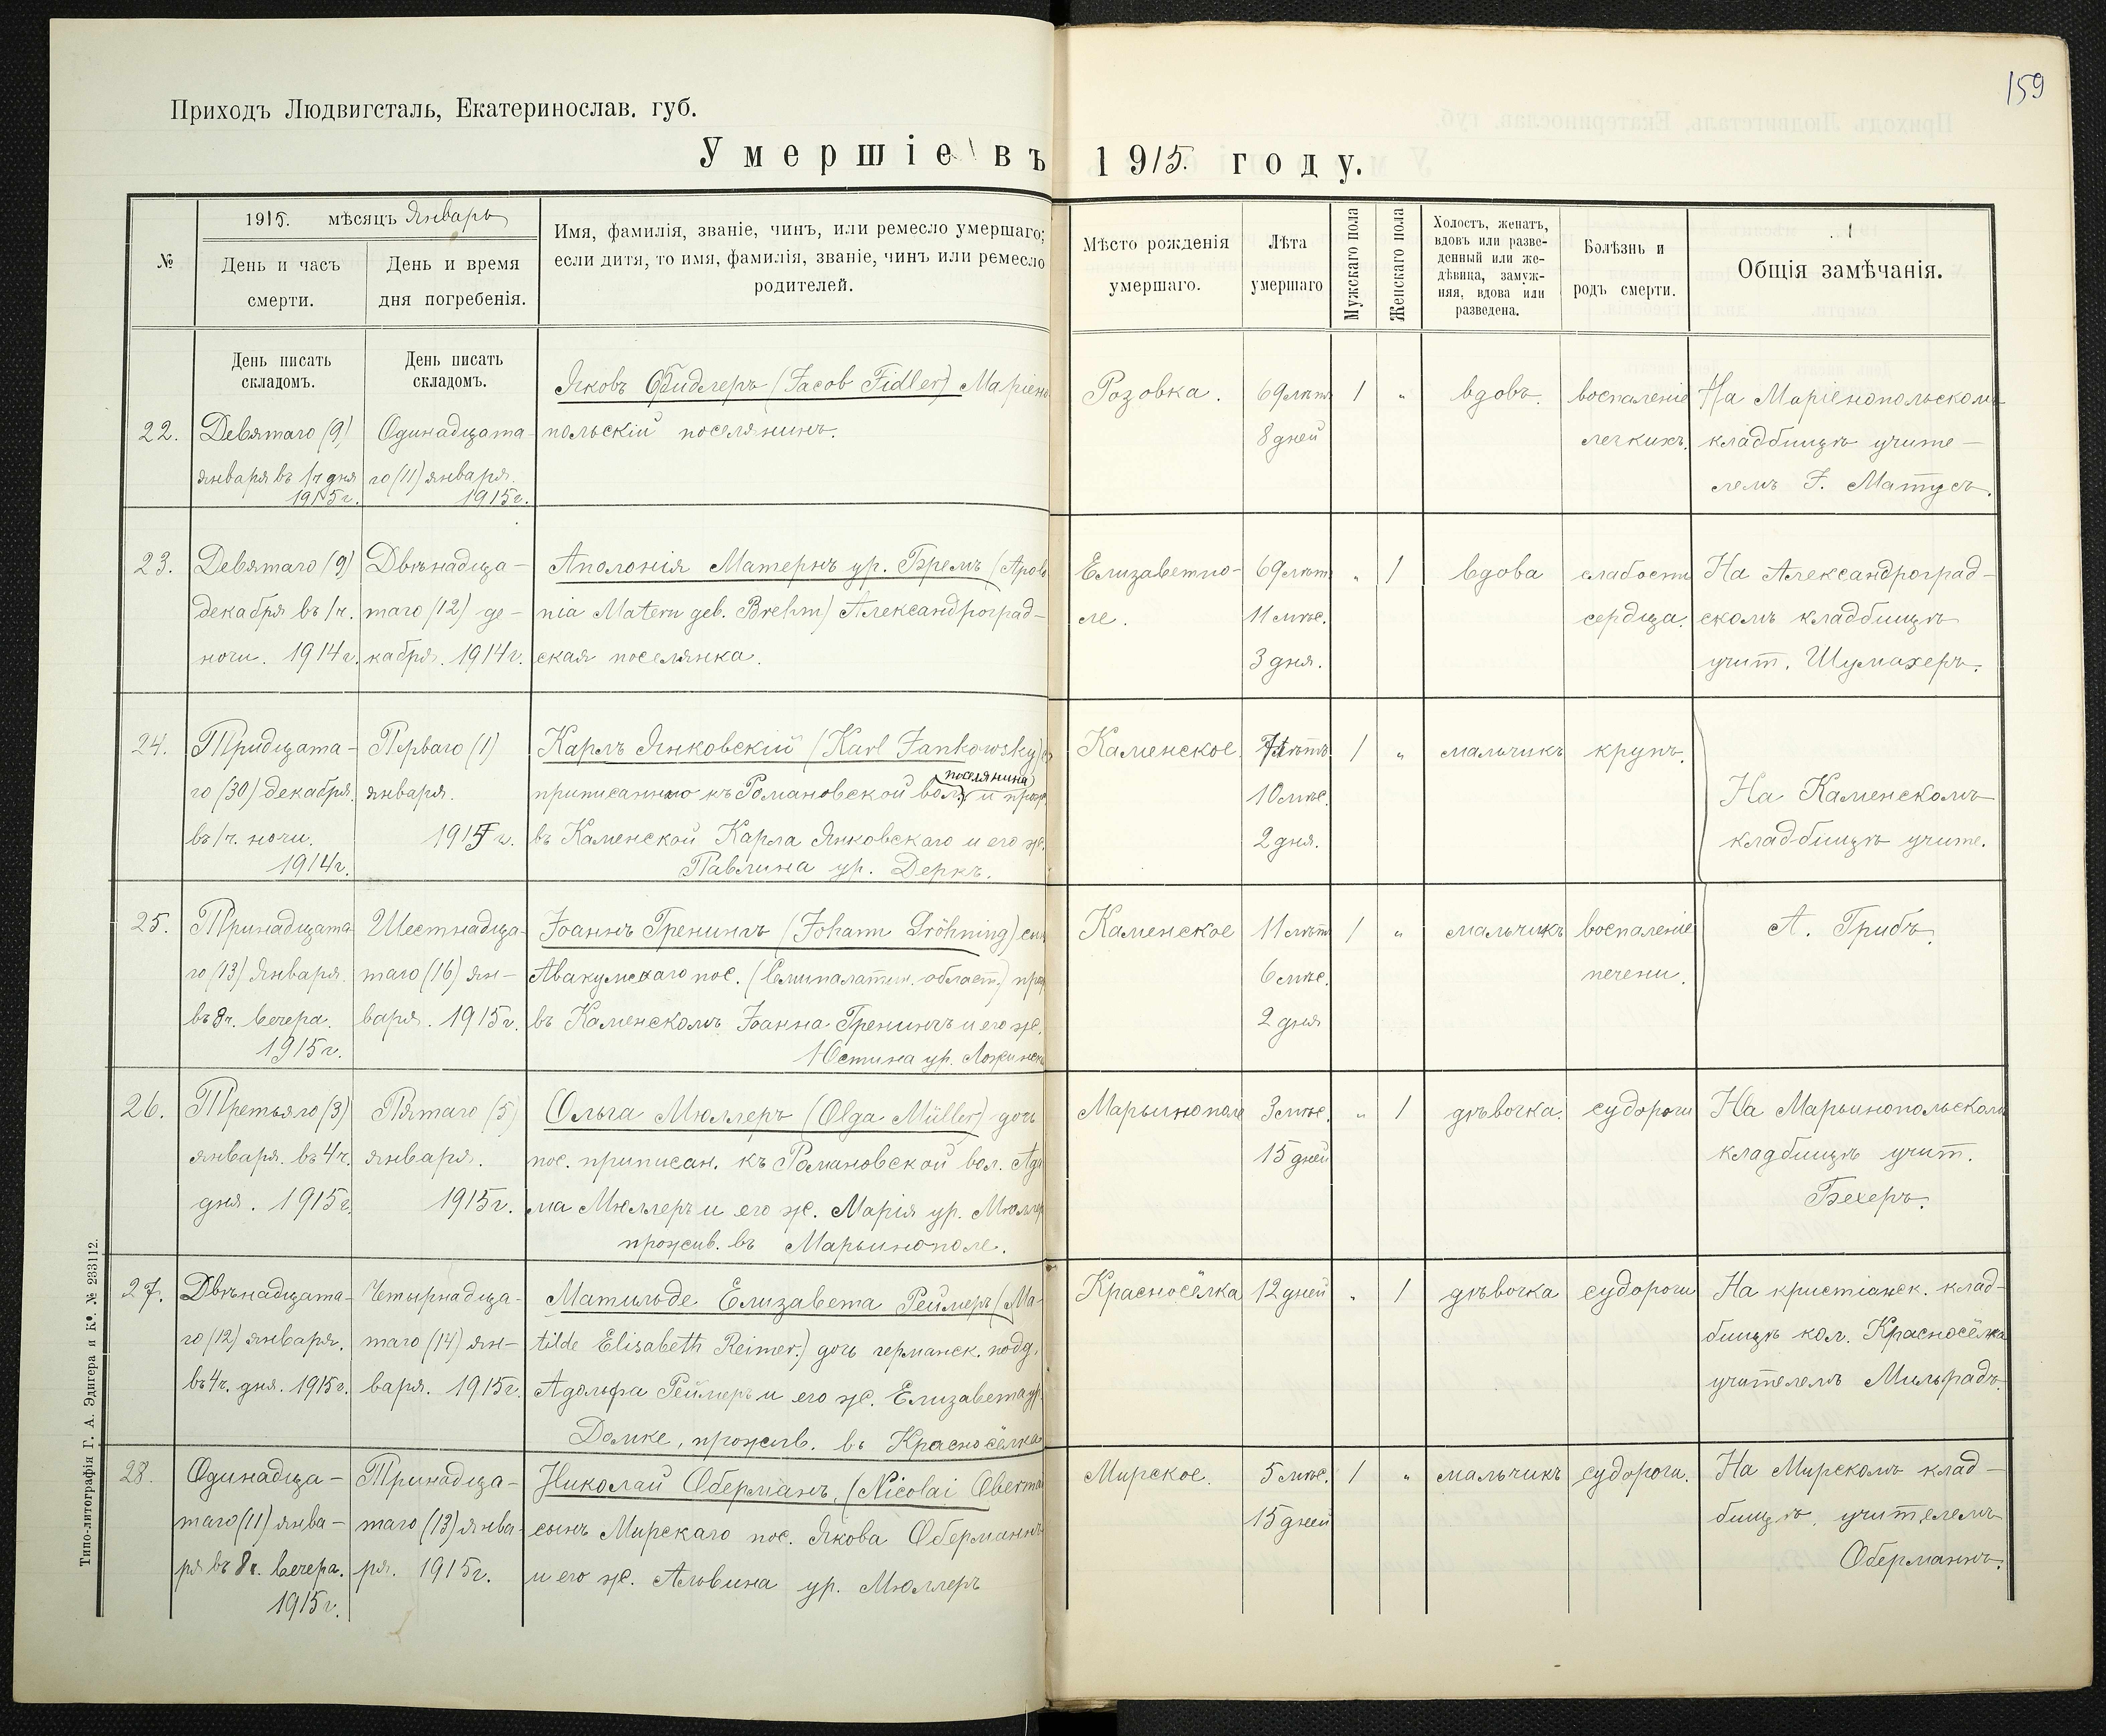 159
Приходъ Людвигсталь, Екатеринослав. губ.
Умершіе въ 1915. году.
№
1915. мѣсяцъ Январь
День и часъ
смерти.
День и время
дня погребенія.
Имя, фамилія, званіе, чинъ, или ремесло умершаго;
если дитя, то имя, фамилія, званіе, чинъ или ремесло
родителей.
Мѣсто рожденія
умершаго.
Лѣта
умершаго
Мужскаго пола
Женскаго пола
Холостъ, женатъ,
вдовъ или разве-
денный или же-
дѣвица, замуж-
няя, вдова или
разведена.
Болѣзнь и
родъ смерти.
Общія замѣчанія.
День писать
складомъ.
День писать
складомъ.
22.
Девятаго (9)
января въ 1ч дня
1915г.
Одинадцата-
го (11) января.
1915г.
Яковъ Фидлеръ (Jacob Fidler) Маріено
польскій поселянинъ.
Розовка.
69 лѣтъ
8 дней
1
"
вдовъ.
воспаленіе
легкихъ.
На Маріенопольскомъ
кладбищѣ учите-
лемъ F. Матусъ.
23.
Девятаго (9)
декабря въ 1ч.
ночи. 1914г.
Двѣнадца-
таго (12) де-
кабря. 1914г.
Аполонія Матернъ ур. Бремъ (Apolo
nia Matern geb. Brehm) Александроград-
ская поселянка.
Елизаветпо-
ле.
69 лѣтъ
11 мѣс.
3 дня.
"
1
вдова
слабость
сердца.
На Александроград-
скомъ кладбищѣ
учит. Шумахеръ.
24.
Тридцата-
го (30) декабря.
въ 1ч. ночи.
1914г.
Перваго (1)
января.
1915 г.
Карлъ Янковскій (Karl Jankowsky) с
поселянина
приписаннаго къ Романовской вол. и прож.
въ Каменской Карла Янковскаго и его ж.
Павлина ур. Деркъ.
Каменское
7 лѣтъ
10 мѣс.
2 дня.
1
"
мальчикъ
крупъ.
На Каменскомъ
кладбищѣ учите.
25.
Тринадцата
го (13) Января.
въ 8ч. вечера.
1915г.
Шестнадца-
таго (16) ян-
варя. 1915г.
Іоаннъ Гренингъ (Johann Gröhning) сын
Авакумскаго пос. (Семипалатин. област.) прож
въ Каменскомъ Іоанна Гренингъ и его ж.
Юстина ур.
Каменское
11 лѣтъ
6 мѣс.
2 дня
1
"
мальчикъ
воспаленіе
печени.
А. Грибъ.
26.
Третьяго (3)
января. въ 4ч.
дня. 1915г.
Пятаго (5)
января.
1915г.
Ольга Мюллеръ (Olga Müller) дочь
пос. приписан. къ Романовской вол. Ада
ма Мюллеръ и его ж. Марія ур. Мюллер
прожив. въ Марьинополе.
Марьинополь
3 мѣс.
15 дней
"
1
дѣвочка.
судороги
На Марьинопольском
кладбищѣ учит.
Бехеръ.
27.
Двѣнадцата-
го (12) января.
въ 4ч. дня. 1915г.
Четырнадца-
таго (14) ян-
варя. 1915г.
Матильде Елизавета Реймеръ (Ma-
tilde Elisabeth Reimer.) дочь германск. подд.
Адольфа Реймеръ и его ж. Елизавета ур.
Домке, прожив. въ Красносёлка
Красносёлка
12 дней
"
1
дѣвочка
судороги
На христіанск. клад-
бищѣ кол. Красносёлка
учителемъ Мильрадъ.
28.
Одинадца-
таго (11) янва-
ря въ 8ч. вечера.
1915г.
Тринадца-
таго (13) янва
ря. 1915г.
Николай Оберманъ. (Nicolai Oberma
сынъ Мирскаго пос. Якова Оберманнъ
и его ж. Альвина ур. Мюллеръ
Мирское.
5 мѣс.
15 дней
1
"
мальчикъ
судороги.
На Мирскомъ клад-
бищѣ. учителемъ
Оберманнъ.
Типо-литографія Г. А. Эдигера и Ко. № 233112.